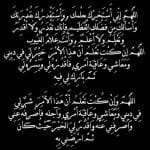 اللهم إني أستخيرك بعلمك وأستقدرك بقدرتك
وأسألك من فضلك العظيم فإنك تقدر ولا أقدر
وتعلم ولا أعلم وأنت علام الغيوب
اللهم إن كنت تعلم أن هذا الأمر خير لي في ديني
ومعاشي وعاقبة أمري فاقدره لي ويسره لي
ثم بارك لي فيه
اللهم وإن كنت تعلم أن هذا الأمر شر لي
في ديني ومعاشي وعاقبة أمري فاصرفه عني
واصرفني عنه واقدر لي الخير حيث كان
ثم أرضني به